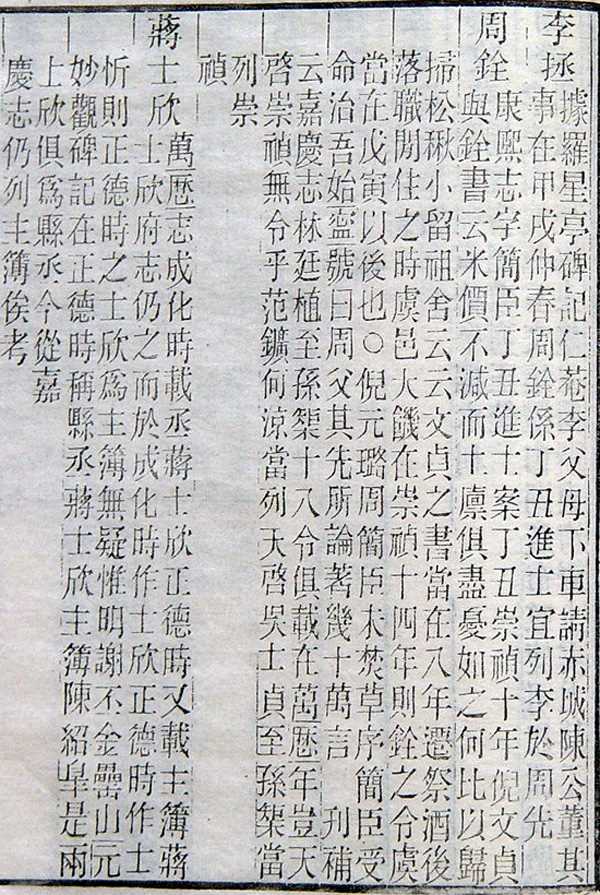 李拯 據羅星亭碑記仁菴李父母下車請赤城陳公董其
事在甲戌仲春周銓係丁丑進士宜列李於周先
周銓 康熙志字簡臣丁丑進士案丁丑崇禎十年倪文貞
與銓書云米價不減而士廩俱盡憂如之何比以歸
掃松楸小留祖舍云云文貞之書當在八年遷祭酒後
落職閒住之時虞邑大饑在崇禎十四年則銓之令虞
當在戊寅以後也○倪元璐周簡臣未焚草序簡臣受
命治吾始寧號曰周父其先所論著幾十萬言 刊補
云嘉慶志林廷植至孫榘十八令俱載在萬歷年豈天
啓崇禎無令乎范鑛何涼當列天啓吳士貞至孫榘當
列崇
禎
蔣士欣 萬歷志成化時載丞蔣士欣正德時又載主簿蔣
士欣府志仍之而於成化時作士欣正德時作士
忻則正德時之士欣爲主簿無疑惟明謝丕金罍山元
妙觀碑記在正德時稱縣丞蔣士欣主簿陳紹皐是兩
士欣俱爲縣丞今從嘉
慶志仍列主簿俟考